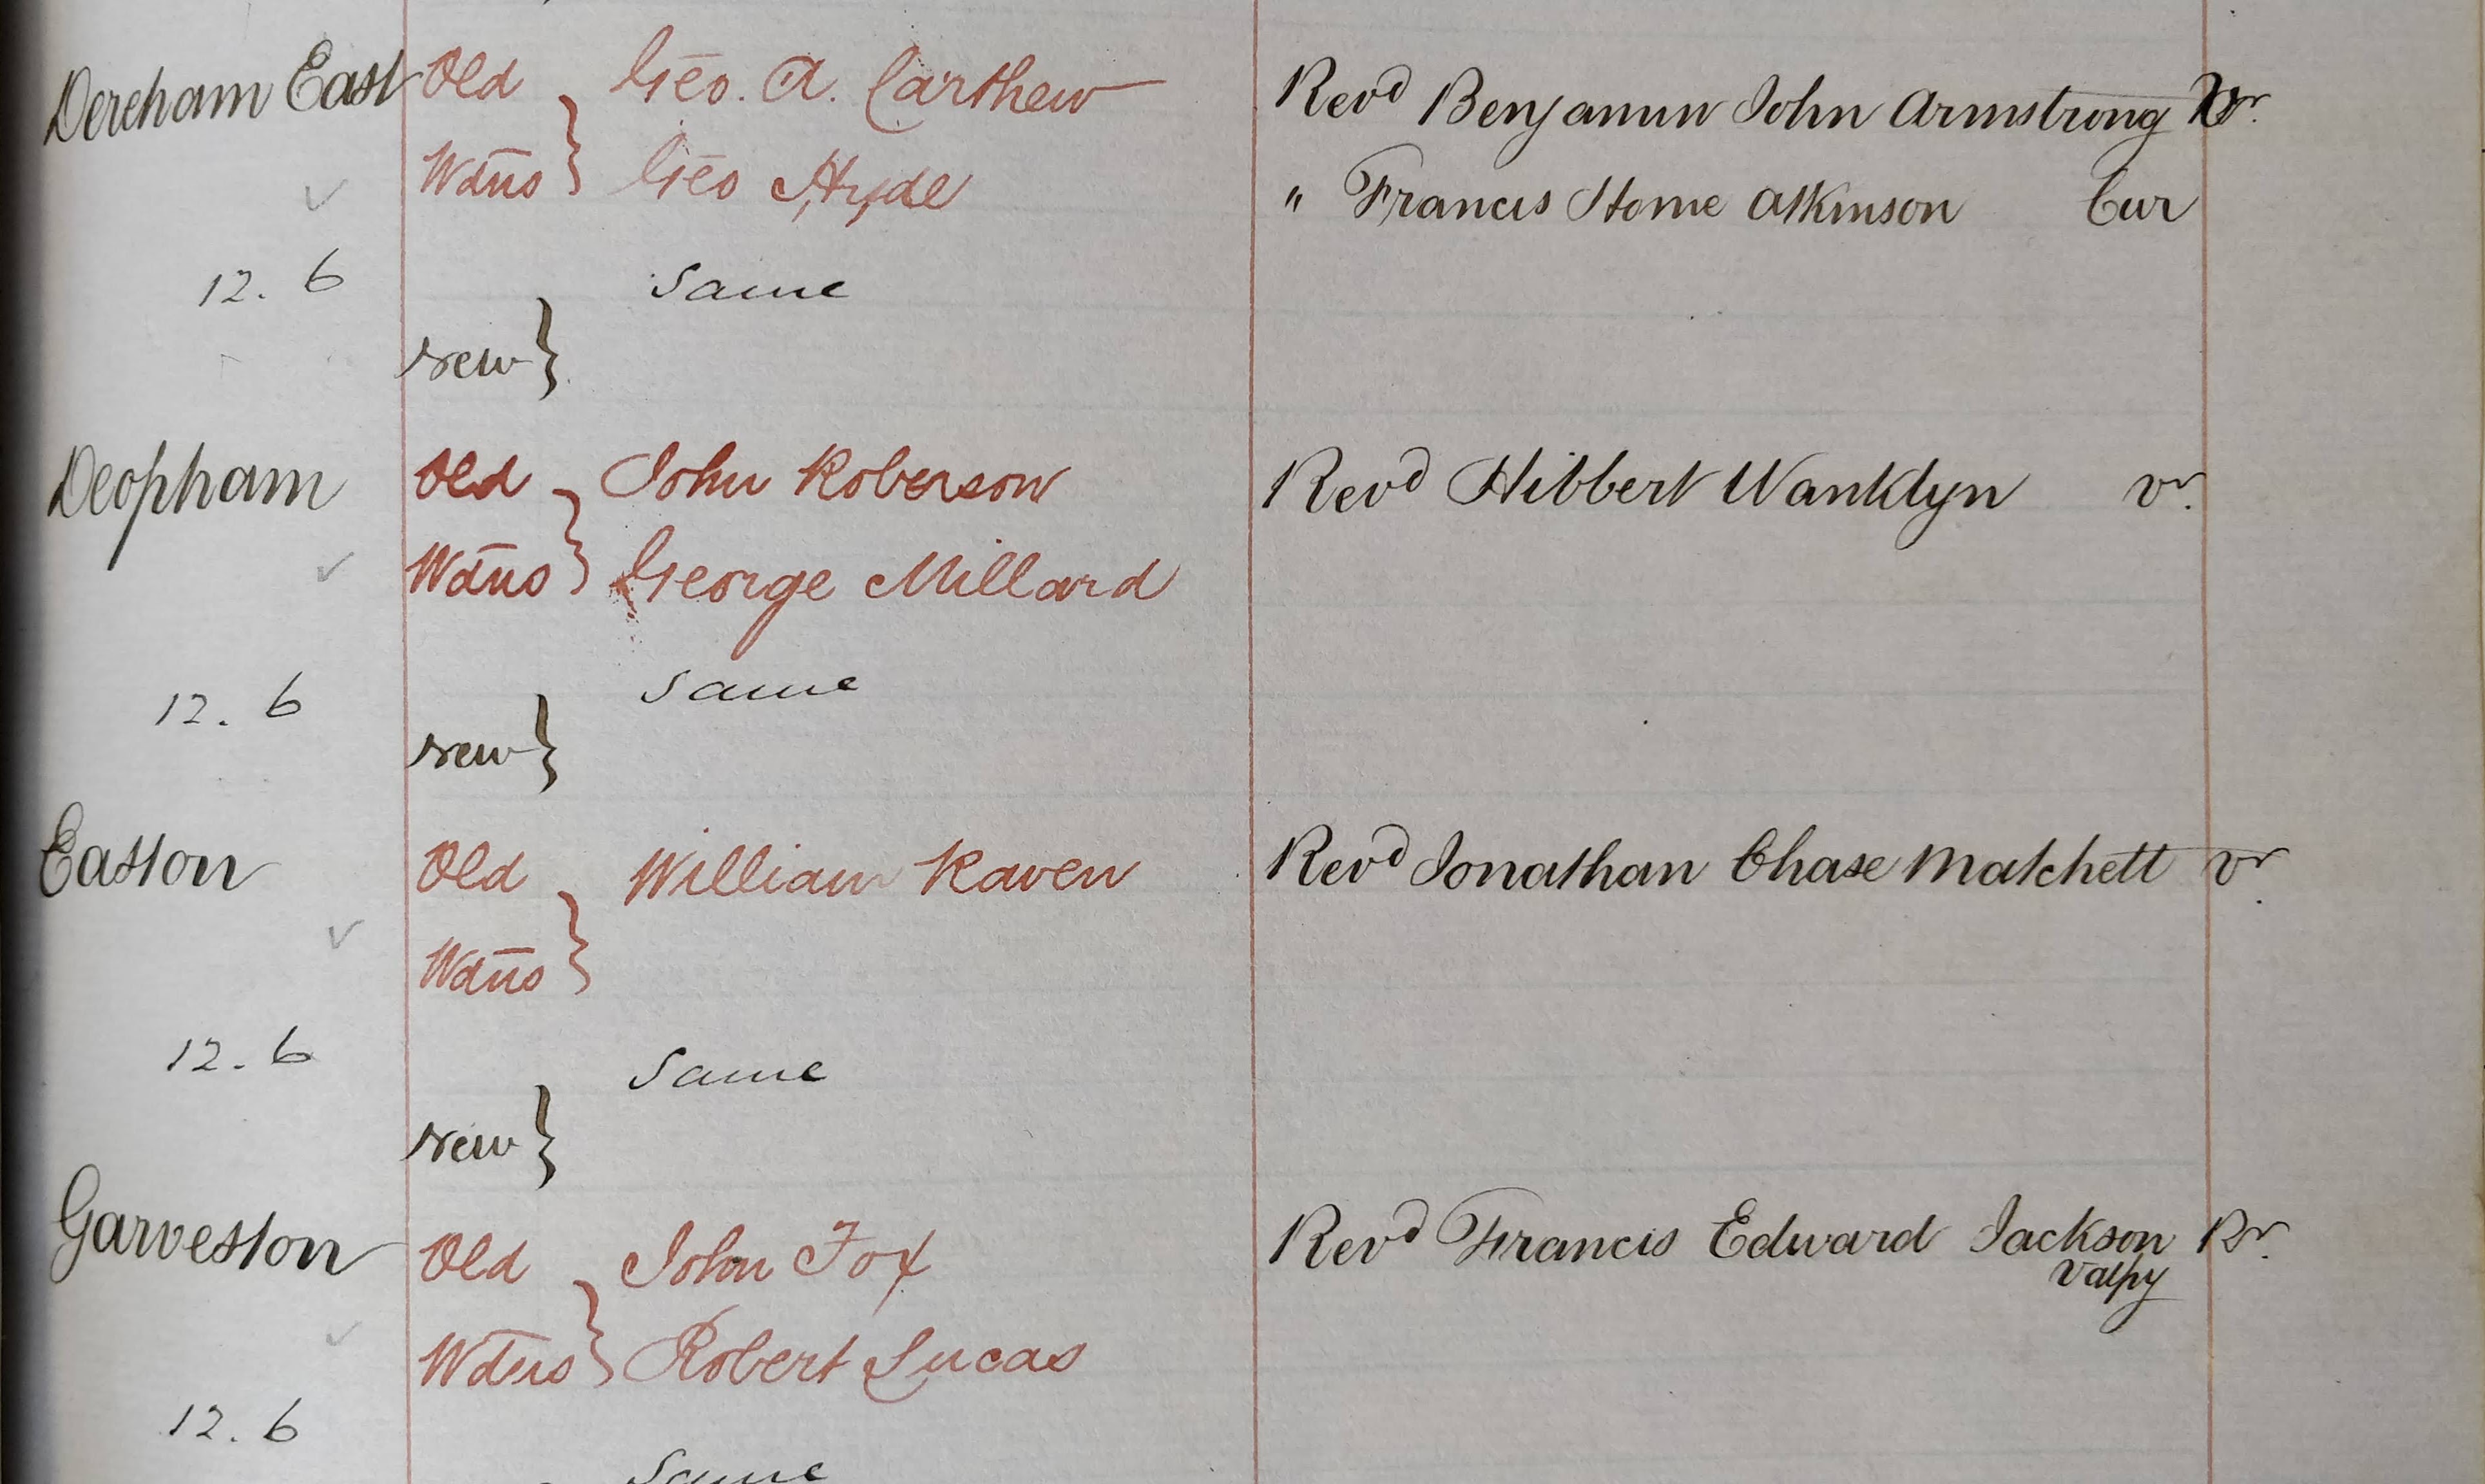 Dereham East Old } Geo. A. Carthew Revd Benjamin John Armstrong Vr.
Wdns } Geo Hyde " Francis Home Atkinson Cur
12. 6 Same
New }
Deopham Old } John Roberson Revd Hibbert Wanklyn Vr.
Wdns } George Millard
12. 6 Same
New }
Easton Old } William Raven Revd Jonathan Chase Matchett Vr.
Wdns }
12. 6 Same
New }
Garveston Old } John Fox Revd Francis Edward Jackson Rr.
Valpy
Wdns } Robert Lucas
12. 6
Same